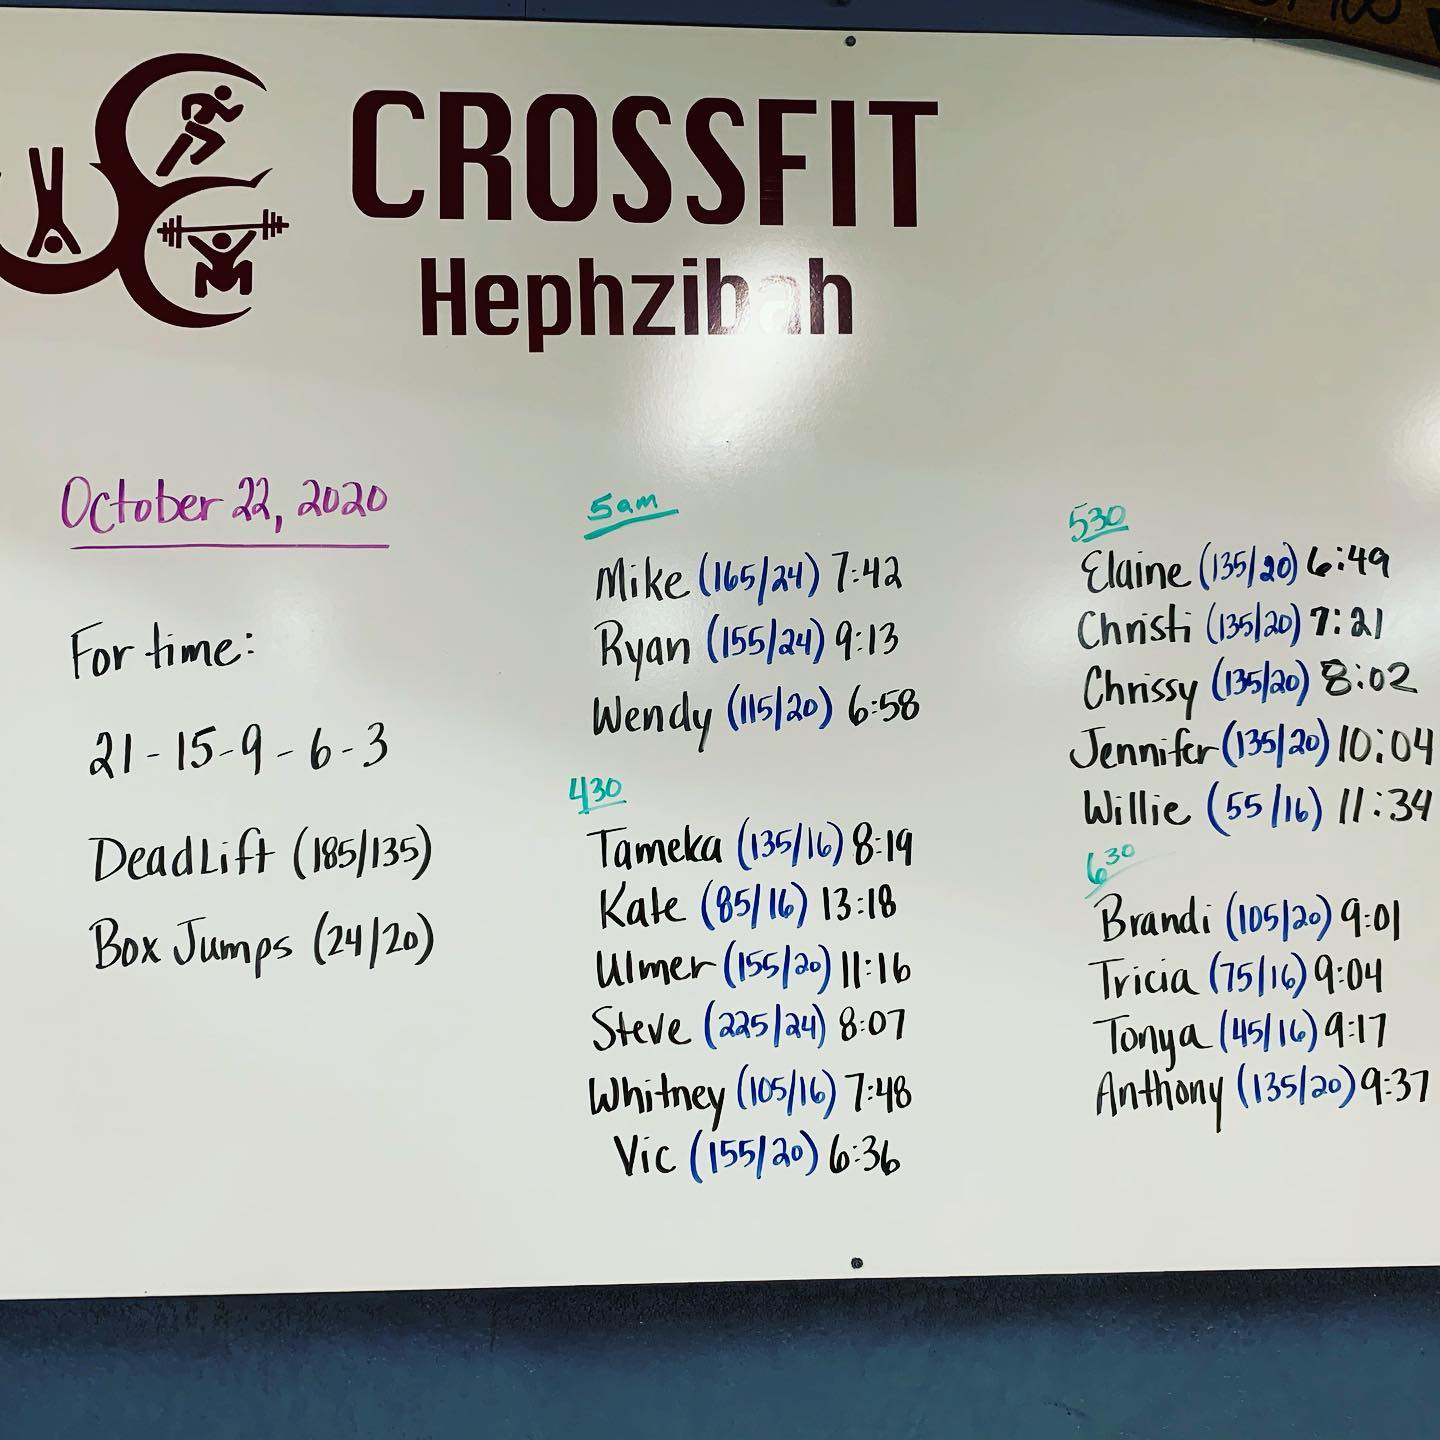 CROSSFIT
Hephzibah
October 22, 2020
For time:
21-15-9-6-3
DeadLift (185/135)
Box Jumps (24/20)
5am
Mike (165/24) 7:42
Ryan (155/24) 9:13
Wendy (115/20) 6:58
430
Tameka (135/16) 8:19
Kate (85/16) 13:18
Ulmer (155/20) 11:16
Steve (225/24) 8:07
Whitney (105/16) 7:48
Vic (155/20) 6:36
530
Elaine (135/20) 6:49
Christi (135/20) 7:21
Chrissy (135/20) 8:02
Jennifer (135/20) 10:04
Willie (55/16) 11:34
630
Brandi (105/20) 9:01
Tricia (75/16) 9:04
Tonya (45/16) 9:17
Anthony (135/20) 9:37